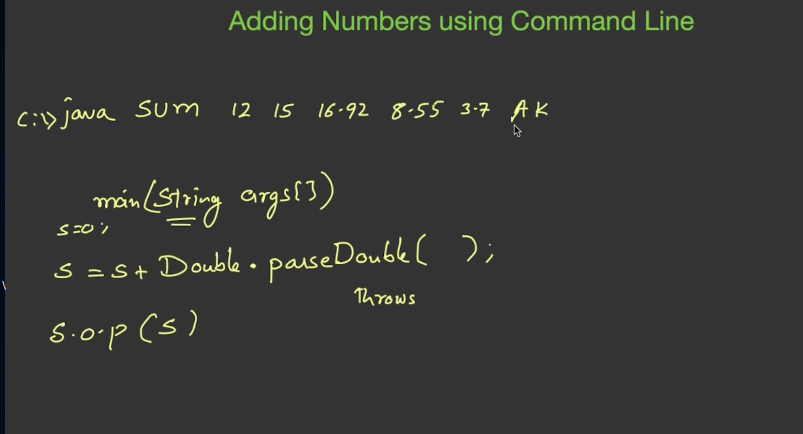 Adding Numbers using Command Line
C:\> java SUM 12 15 16.92 8.55 3.7 AK
main(String args[])
s=0;
s = s + Double.parseDouble( );
throws
S.o.p(s)